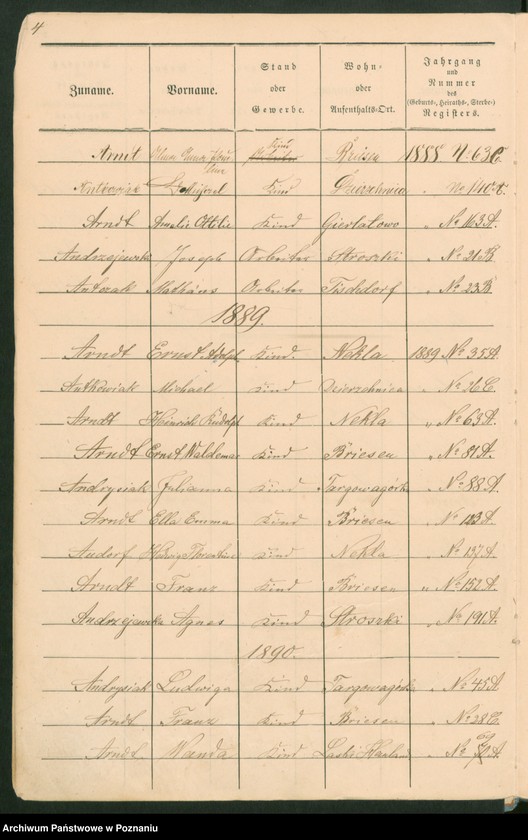 4
Zuname. Vorname. Stand oder Gewerbe. Wohn- oder Aufenthalts-Ort. Jahrgang und Nummer des (Geburts-, Heiraths-, Sterbe-) Registers.
Arndt Kind 1888 N. 63 C.
Kind Dzierzchnica
Arndt Amalie Ottilie Kind Gierlatowo " No 163 A.
Andrzejewski Joseph Arbeiter Stroszki " No 21 B.
Antczak Mathäus Arbeiter Tischdorf " No 23 B.
1889.
Arndt Ernst Adolph Kind Nekla 1889 No 35 A.
Antkowiak Michael Kind Dzierzchnica " No 26 C.
Arndt Heinrich Rudolph Kind Nekla " No 63 A.
Arndt Ernst Waldemar Kind Briesen " No 81 A.
Andrysiak Julianna Kind Targowagórka " No 88 A.
Arndt Ella Emma Kind Briesen " No 113 A.
Kind Nekla " No 137 A.
Arndt Franz Kind Briesen " No 152 A.
Andrzejewska Agnes Kind Stroszki " No 191 A.
1890.
Andrysiak Ludwiga Kind Targowagórka " No 45 A.
Arndt Franz Kind Briesen " No 28 C.
Arndt Wanda Kind " No A.
Archiwum Państwowe w Poznaniu